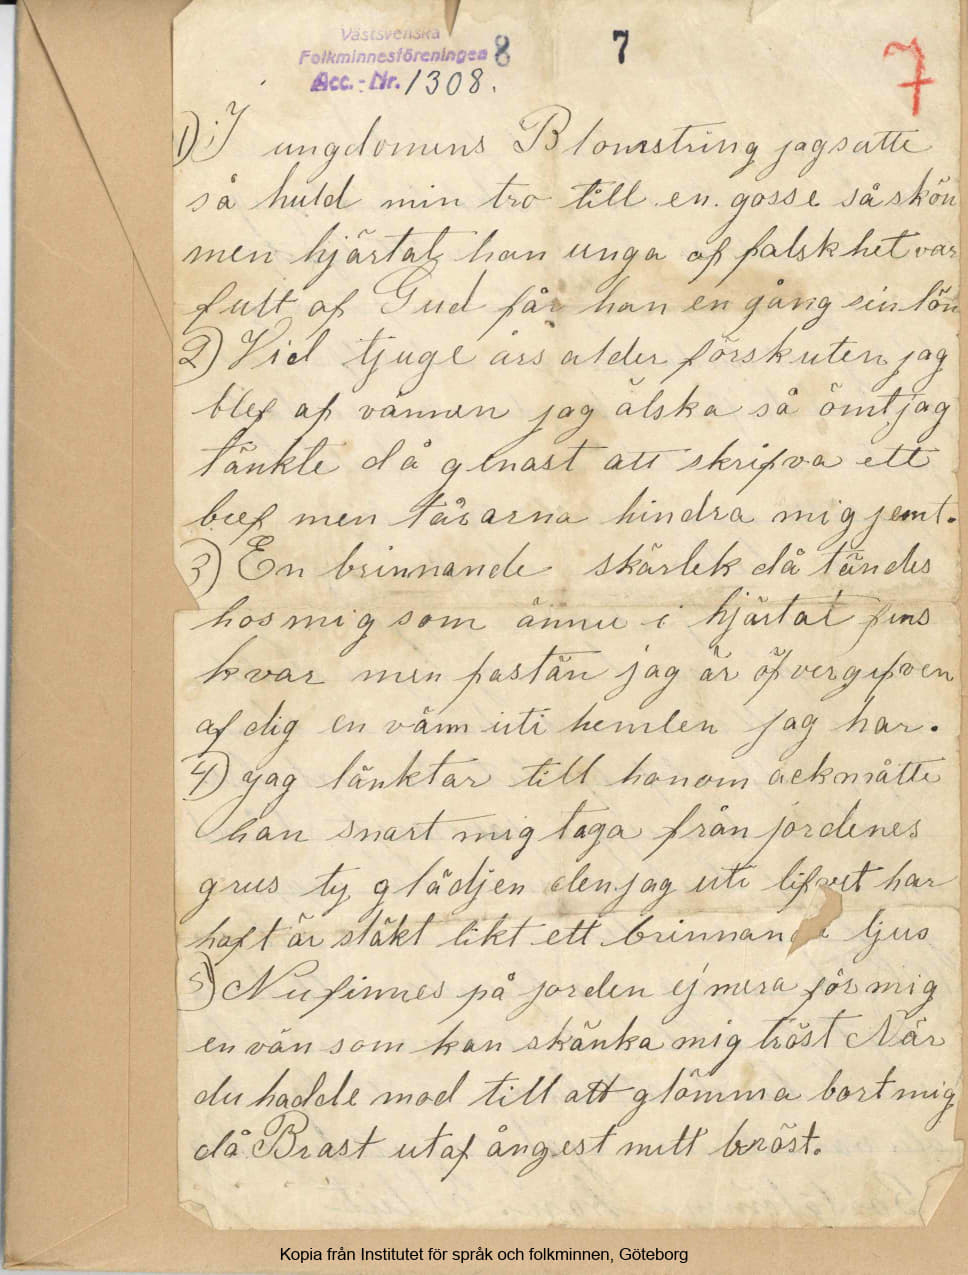 Västsvenska
Folkminnesföreningen 8 7 7
Acc.-Nr. 1308.
1) I ungdomens Blomstring jag satte
så huld min tro till en gosse så skön
men hjärtat han unga af falskhet var
fult af Gud får han en gång sin lön
2) Vid tjuge års alder förskuten jag
blef af vännen jag älska så ömt jag
tänkte då genast att skrifva ett
bref men tårarna hindra mig jemt.
3) En brinnande skärlek då tändes
hos mig som ännu i hjärtat fins
kvar men fastän jag är öfvergifven
af dig en vänn uti hemlen jag har.
4) jag länktar till honom ack måtte
han snart mig taga från jordenes
grus ty glädjen den jag uti lifvet har
haft är släkt likt ett brinnande ljus
5) Nu finnes på jorden ej mera för mig
en vän som kan skänka mig tröst När
du hadde mod till att glömma bort mig
då Brast utaf ångest mitt bröst.
Kopia från Institutet för språk och folkminnen, Göteborg